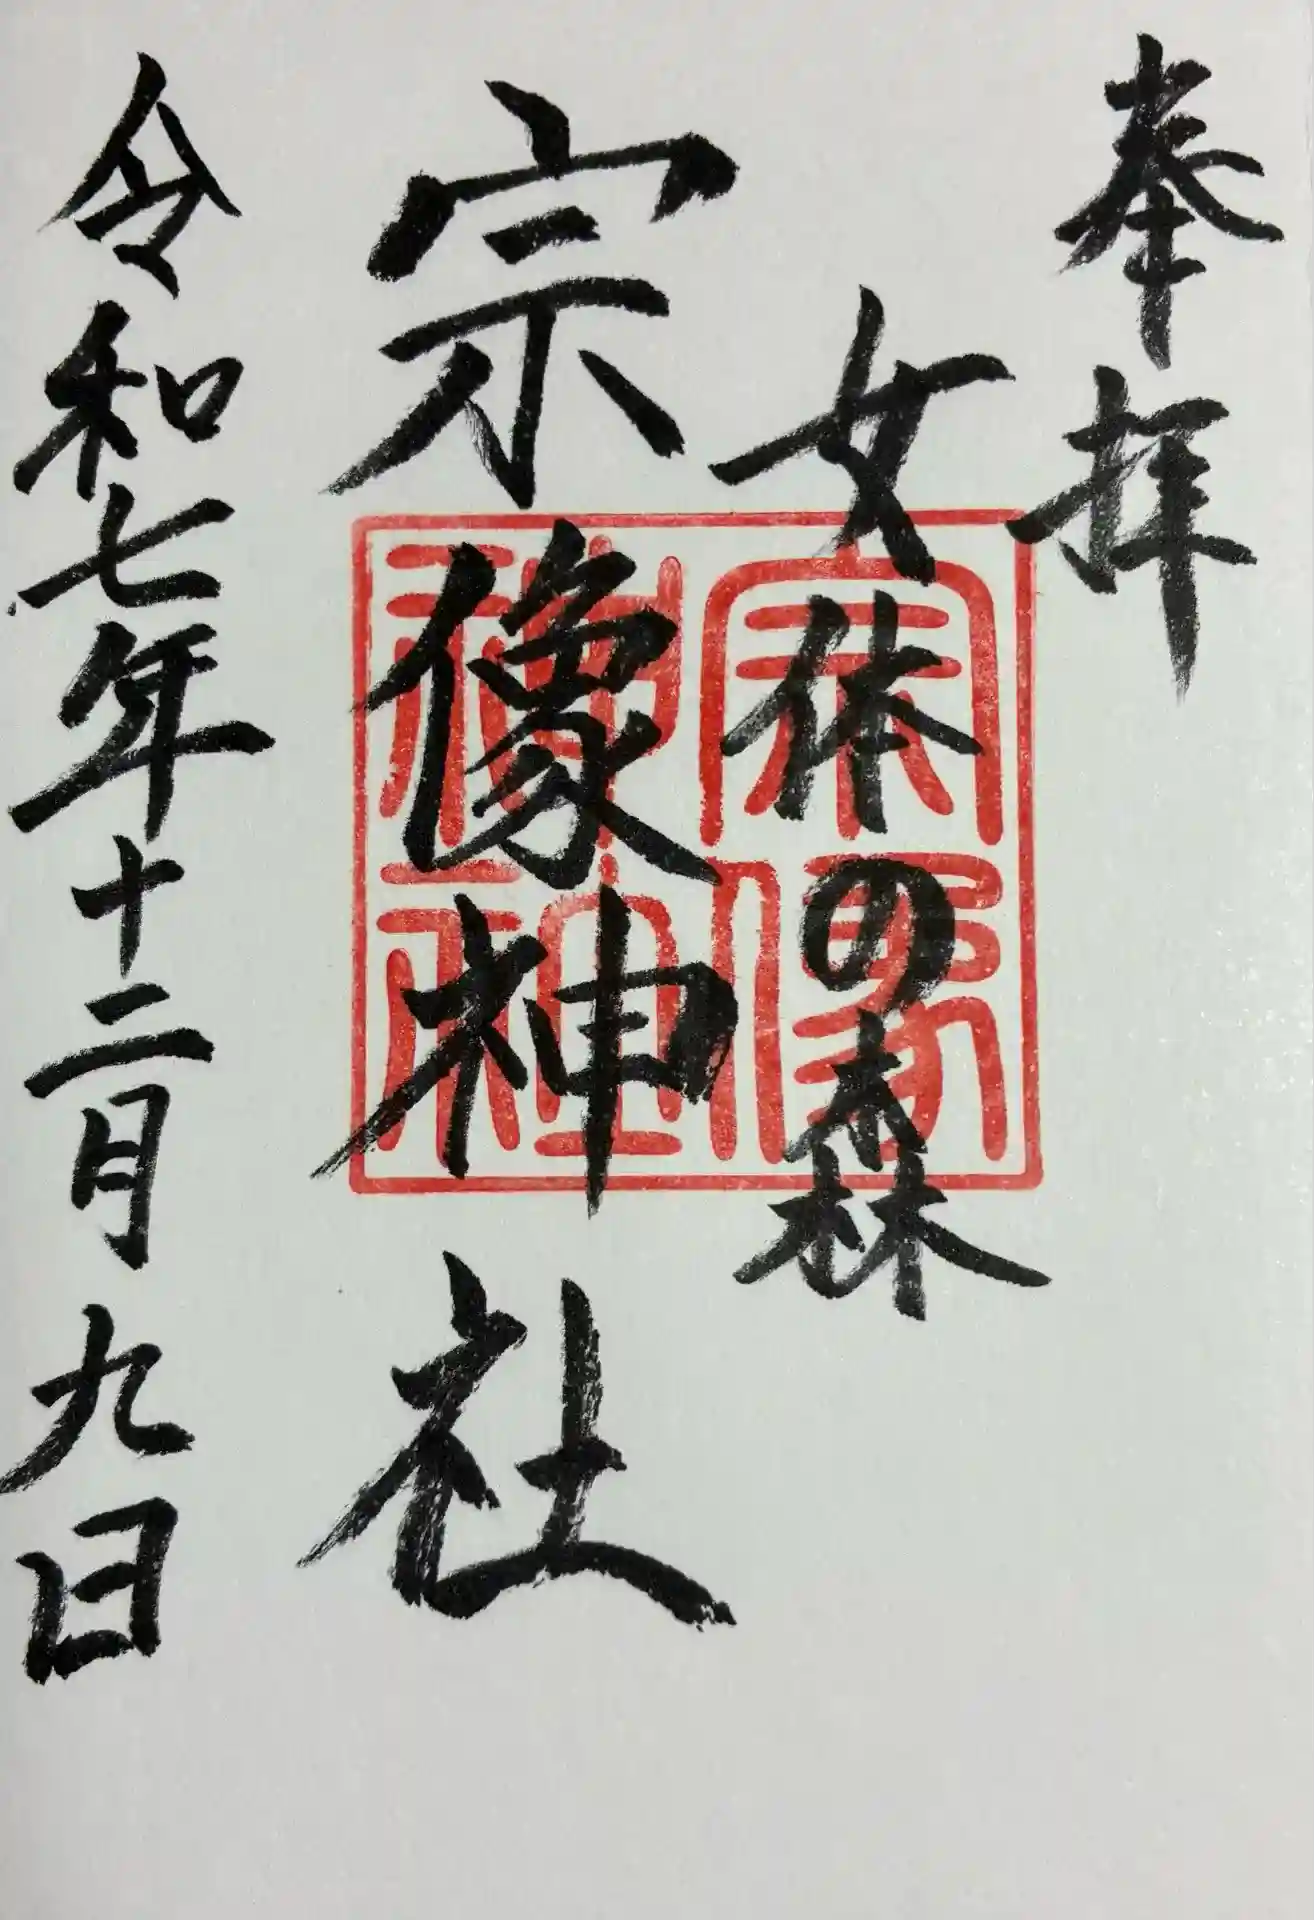 奉拝
女体の森
宗像神社
宗像神社
令和七年十二月九日